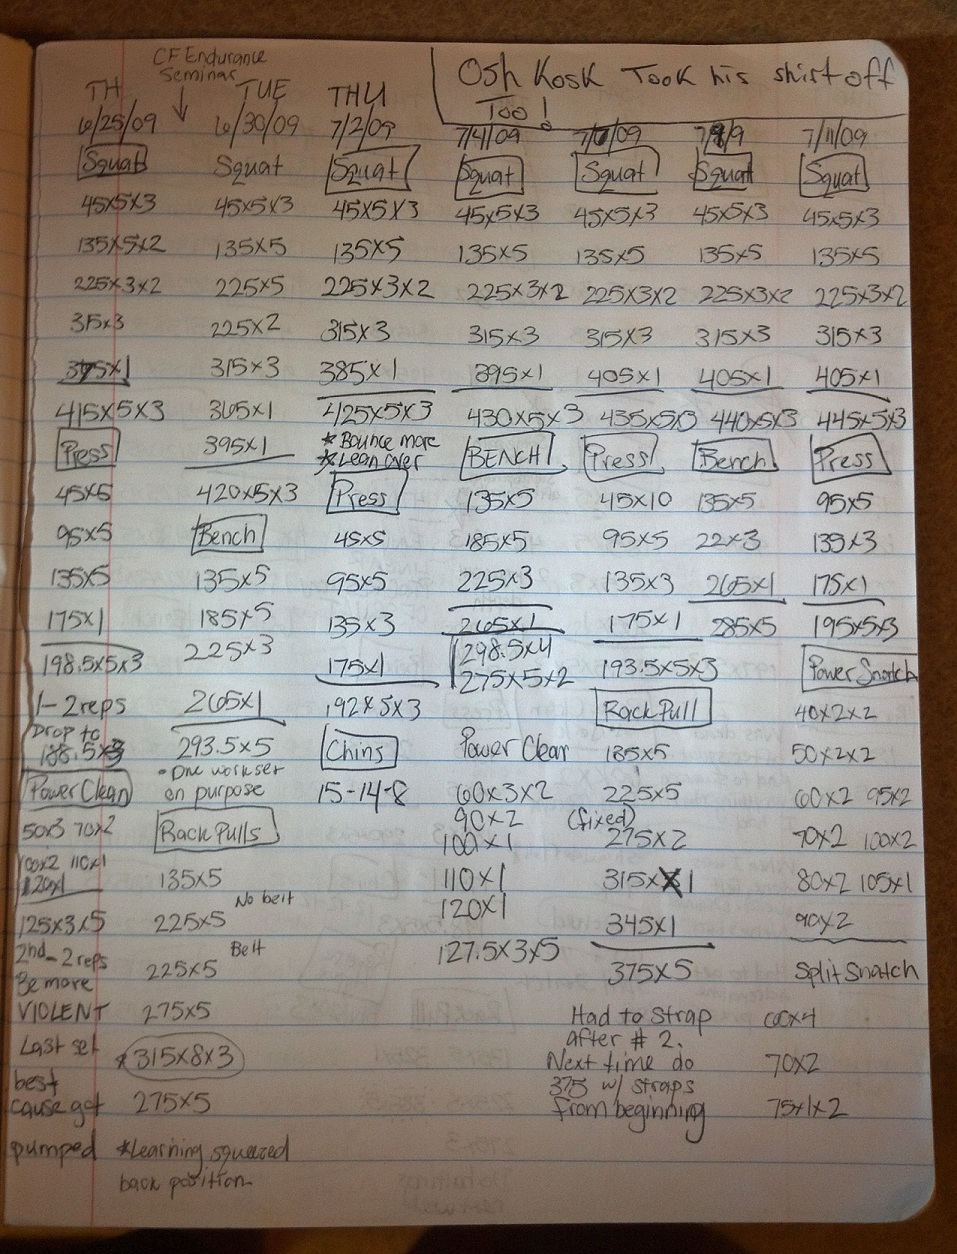 CF Endurance
Seminar
Osh Kosk Took his shirt off
Too!
TH
6/25/09
Squat
45x5x3
135x5x2
225x3x2
315x3
375x1
415x5x3
Press
45x5
95x5
135x5
175x1
198.5x5x3
1-2 reps
Drop to
188.5x3
Power Clean
50x3 70x2
100x2 110x1
120x1
125x3x5
2nd-2 reps
Be more
VIOLENT
Last set
best
cause got
pumped
TUE
6/30/09
Squat
45x5x3
135x5
225x5
225x2
315x3
365x1
395x1
420x5x3
Bench
135x5
185x5
225x3
265x1
293.5x5
• One work set
on purpose
Rack Pulls
135x5
No belt
225x5
Belt
225x5
275x5
*315x8x3
275x5
*Learning squeezed
back position
THU
7/2/09
Squat
45x5x3
135x5
225x3x2
315x3
385x1
425x5x3
* Bounce more
* Lean over
Press
45x5
95x5
135x3
175x1
192x5x3
Chins
15-14-8
7/4/09
Squat
45x5x3
135x5
225x3x2
315x3
395x1
430x5x3
BENCH
135x5
185x5
225x3
265x1
298.5x4
275x5x2
Power Clean
60x3x2
90x2
100x1
110x1
120x1
127.5x3x5
Squat
45x5x3
135x5
225x3x2
315x3
405x1
435x5x3
Press
45x10
95x5
135x3
175x1
193.5x5x3
Rack Pull
135x5
225x5
(fixed)
275x2
315x1
345x1
375x5
Had to strap
after # 2.
Next time do
375 w/ straps
from beginning
Squat
45x5x3
135x5
225x3x2
315x3
405x1
440x5x3
Bench
135x5
22x3
265x1
285x5
7/11/09
Squat
45x5x3
135x5
225x3x2
315x3
405x1
445x5x3
Press
95x5
135x3
175x1
195x5x3
Power Snatch
40x2x2
50x2x2
60x2 95x2
70x2 100x2
80x2 105x1
90x2
Split Snatch
60x4
70x2
75x1x2